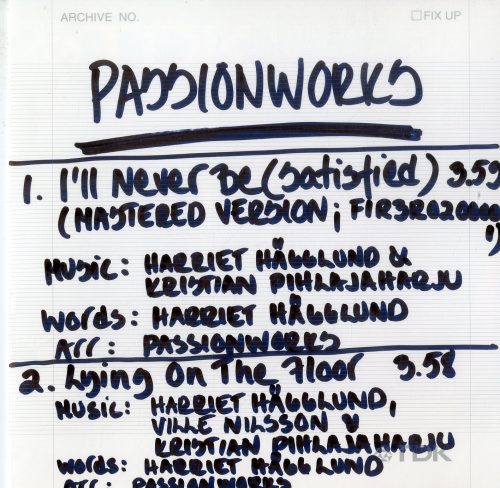 ARCHIVE NO. FIX UP
PASSIONWORKS
1. I'll Never Be (Satisfied) 3.53
(MASTERED VERSION;
MUSIC: HARRIET HÄGGLUND &
KRISTIAN PIHLAJAHARJU
Words: HARRIET HÄGGLUND
Arr: PASSIONWORKS
2. Lying On The Floor 3.58
MUSIC: HARRIET HÄGGLUND,
VILLE NILSSON &
KRISTIAN PIHLAJAHARJU
TDK
Words: HARRIET HÄGGLUND
Arr: PASSIONWORKS